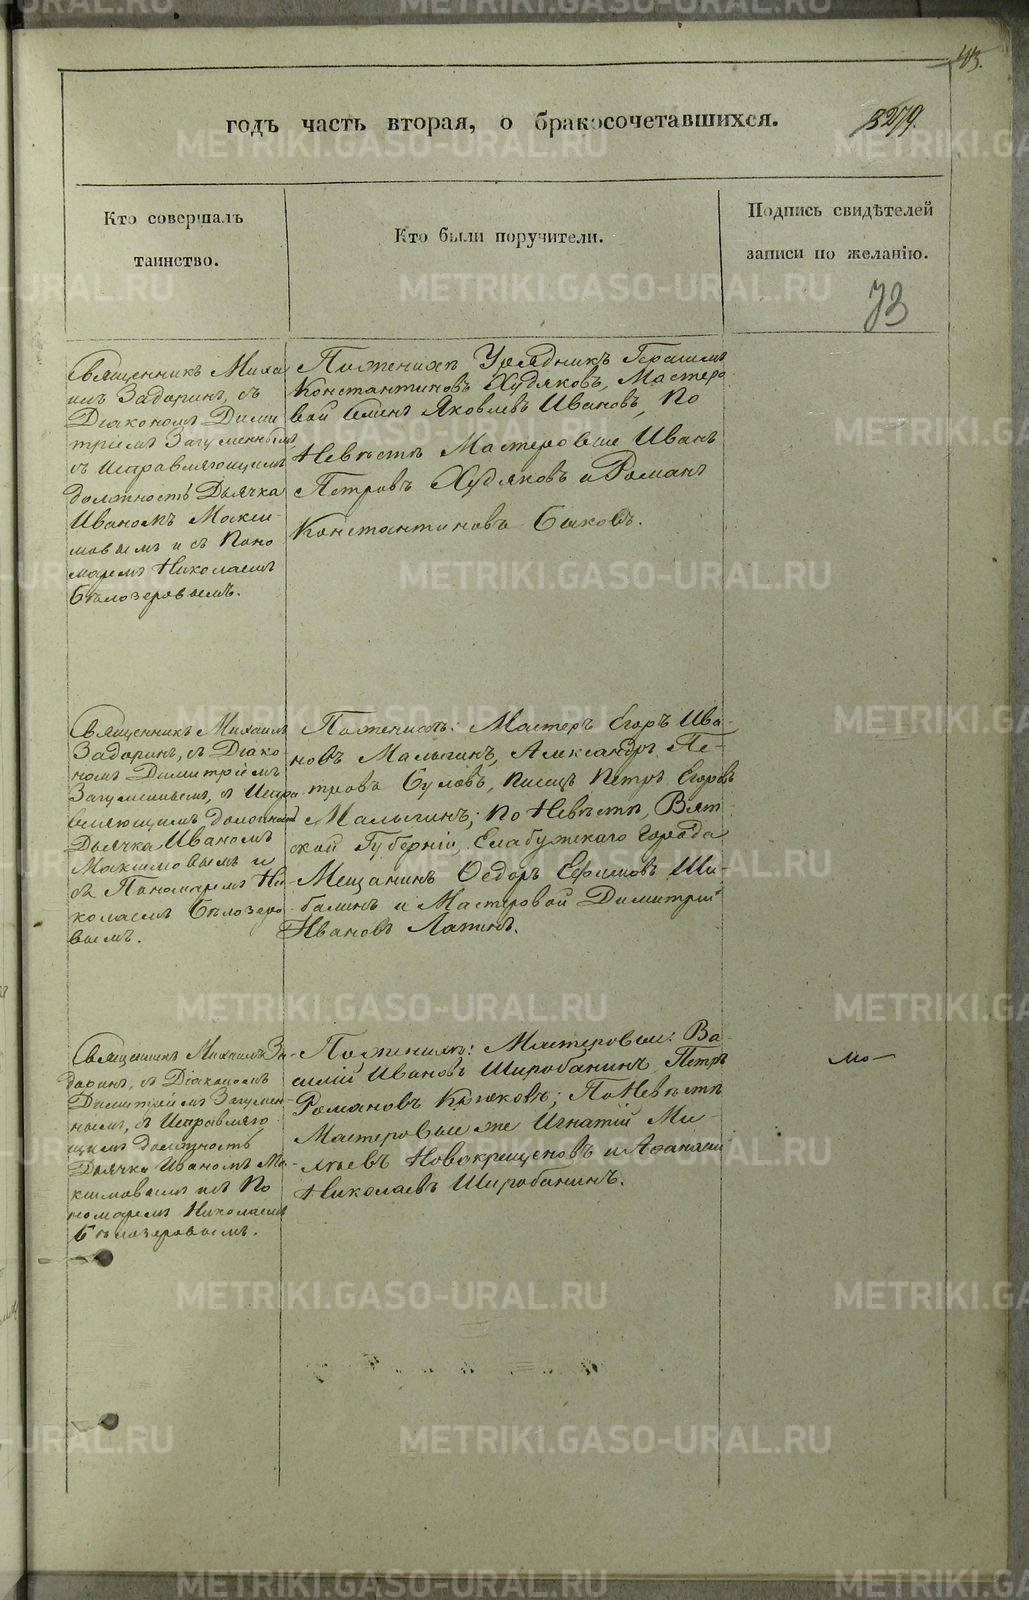 43.
годъ часть вторая, о бракосочетавшихся.
3279.
Кто совершалъ
таинство.
Кто были поручители.
Подпись свидѣтелей
записи по желанію.
73
Священникъ Миха
илъ Задоринъ, съ
Діакономъ Дими
тріемъ Загуменнымъ,
съ Исправляющимъ
должность Дьячка
Иваномъ Макси-
мовымъ и съ Поно
маремъ Николаемъ
Бѣлозеровымъ.
По женихѣ Урядникъ Герасимъ
Константиновъ Худяковъ, Мастеро
вой Семенъ Яковлевъ Ивановъ, По
Невѣстѣ Мастеровые Иванъ
Петровъ Худяковъ и Романъ
Константиновъ Быковъ.
Священникъ Михаилъ
Задоринъ, съ Діако-
номъ Димитріемъ
Загуменнымъ, съ Испра
вляющимъ должность
Дьячка Иваномъ
Максимовымъ и
съ Пономаремъ Ни-
колаемъ Бѣлозеро
вымъ.
По женихѣ: Мастеръ Егоръ Ива-
новъ Малыгинъ, Александръ Пе-
тровъ Суловъ, писецъ Петръ Егоровъ
Малыгинъ; по Невѣстѣ, Вят-
ской Губерніи, Елабужскаго Города
Мещанинъ Ѳедоръ Ефимовъ Ши-
балинъ и Мастеровой Димитрій
Ивановъ Лапинъ.
Священникъ Михаилъ За-
доринъ, съ Діакономъ
Димитріемъ Загумен
нымъ, съ Исправляю
щимъ должность
Дьячка Иваномъ Ма-
ксимовымъ и съ По
номаремъ Николаемъ
Бѣлозеровымъ.
По женихѣ: Мастеровые: Ва-
силій Ивановъ Широбанинъ, Петръ
Романовъ Крюковъ; По Невѣстѣ
Мастеровые же Игнатій Ми-
Новокрещеновъ и Аѳанасій
Николаевъ Широбанинъ.